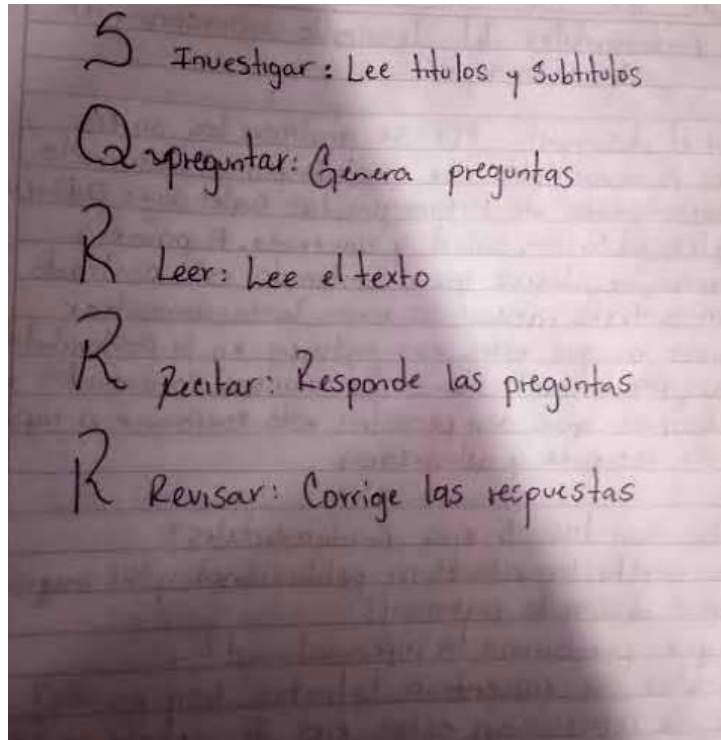 S Investigar: Lee titulos y Subtitulos
Q preguntar: Genera preguntas
R Leer: Lee el texto
R Recitar: Responde las preguntas
R Revisar: Corrige las respuestas